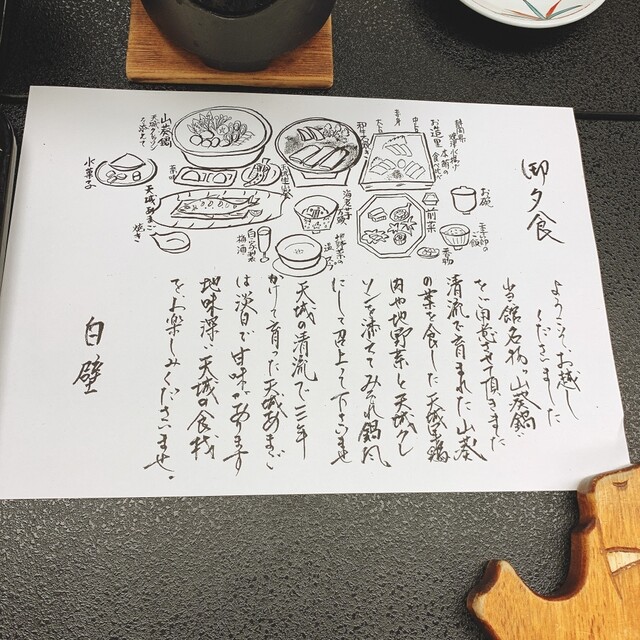 御夕食
ようこそお越し
くださいました
当館名物の山葵鍋
をご用意させて頂きました
清流で育まれた山葵
の葉を食した天城軍鶏
肉や地野菜と天城クレ
ソンを添えてみぞれ鍋風
にして召上って下さいませ
天城の清流で三年
かけて育った天城あまご
は淡白で甘味があります
地味深い天城の食材
をお楽しみくださいませ。
白壁
お椀
ご飯
香物
前菜
静岡県
お造里
本山葵の
食べ比べ
海老芋
地野菜の
自家製
梅酒
山葵鍋
天城クレソン
薬味
天城あまご
焼き
水菓子